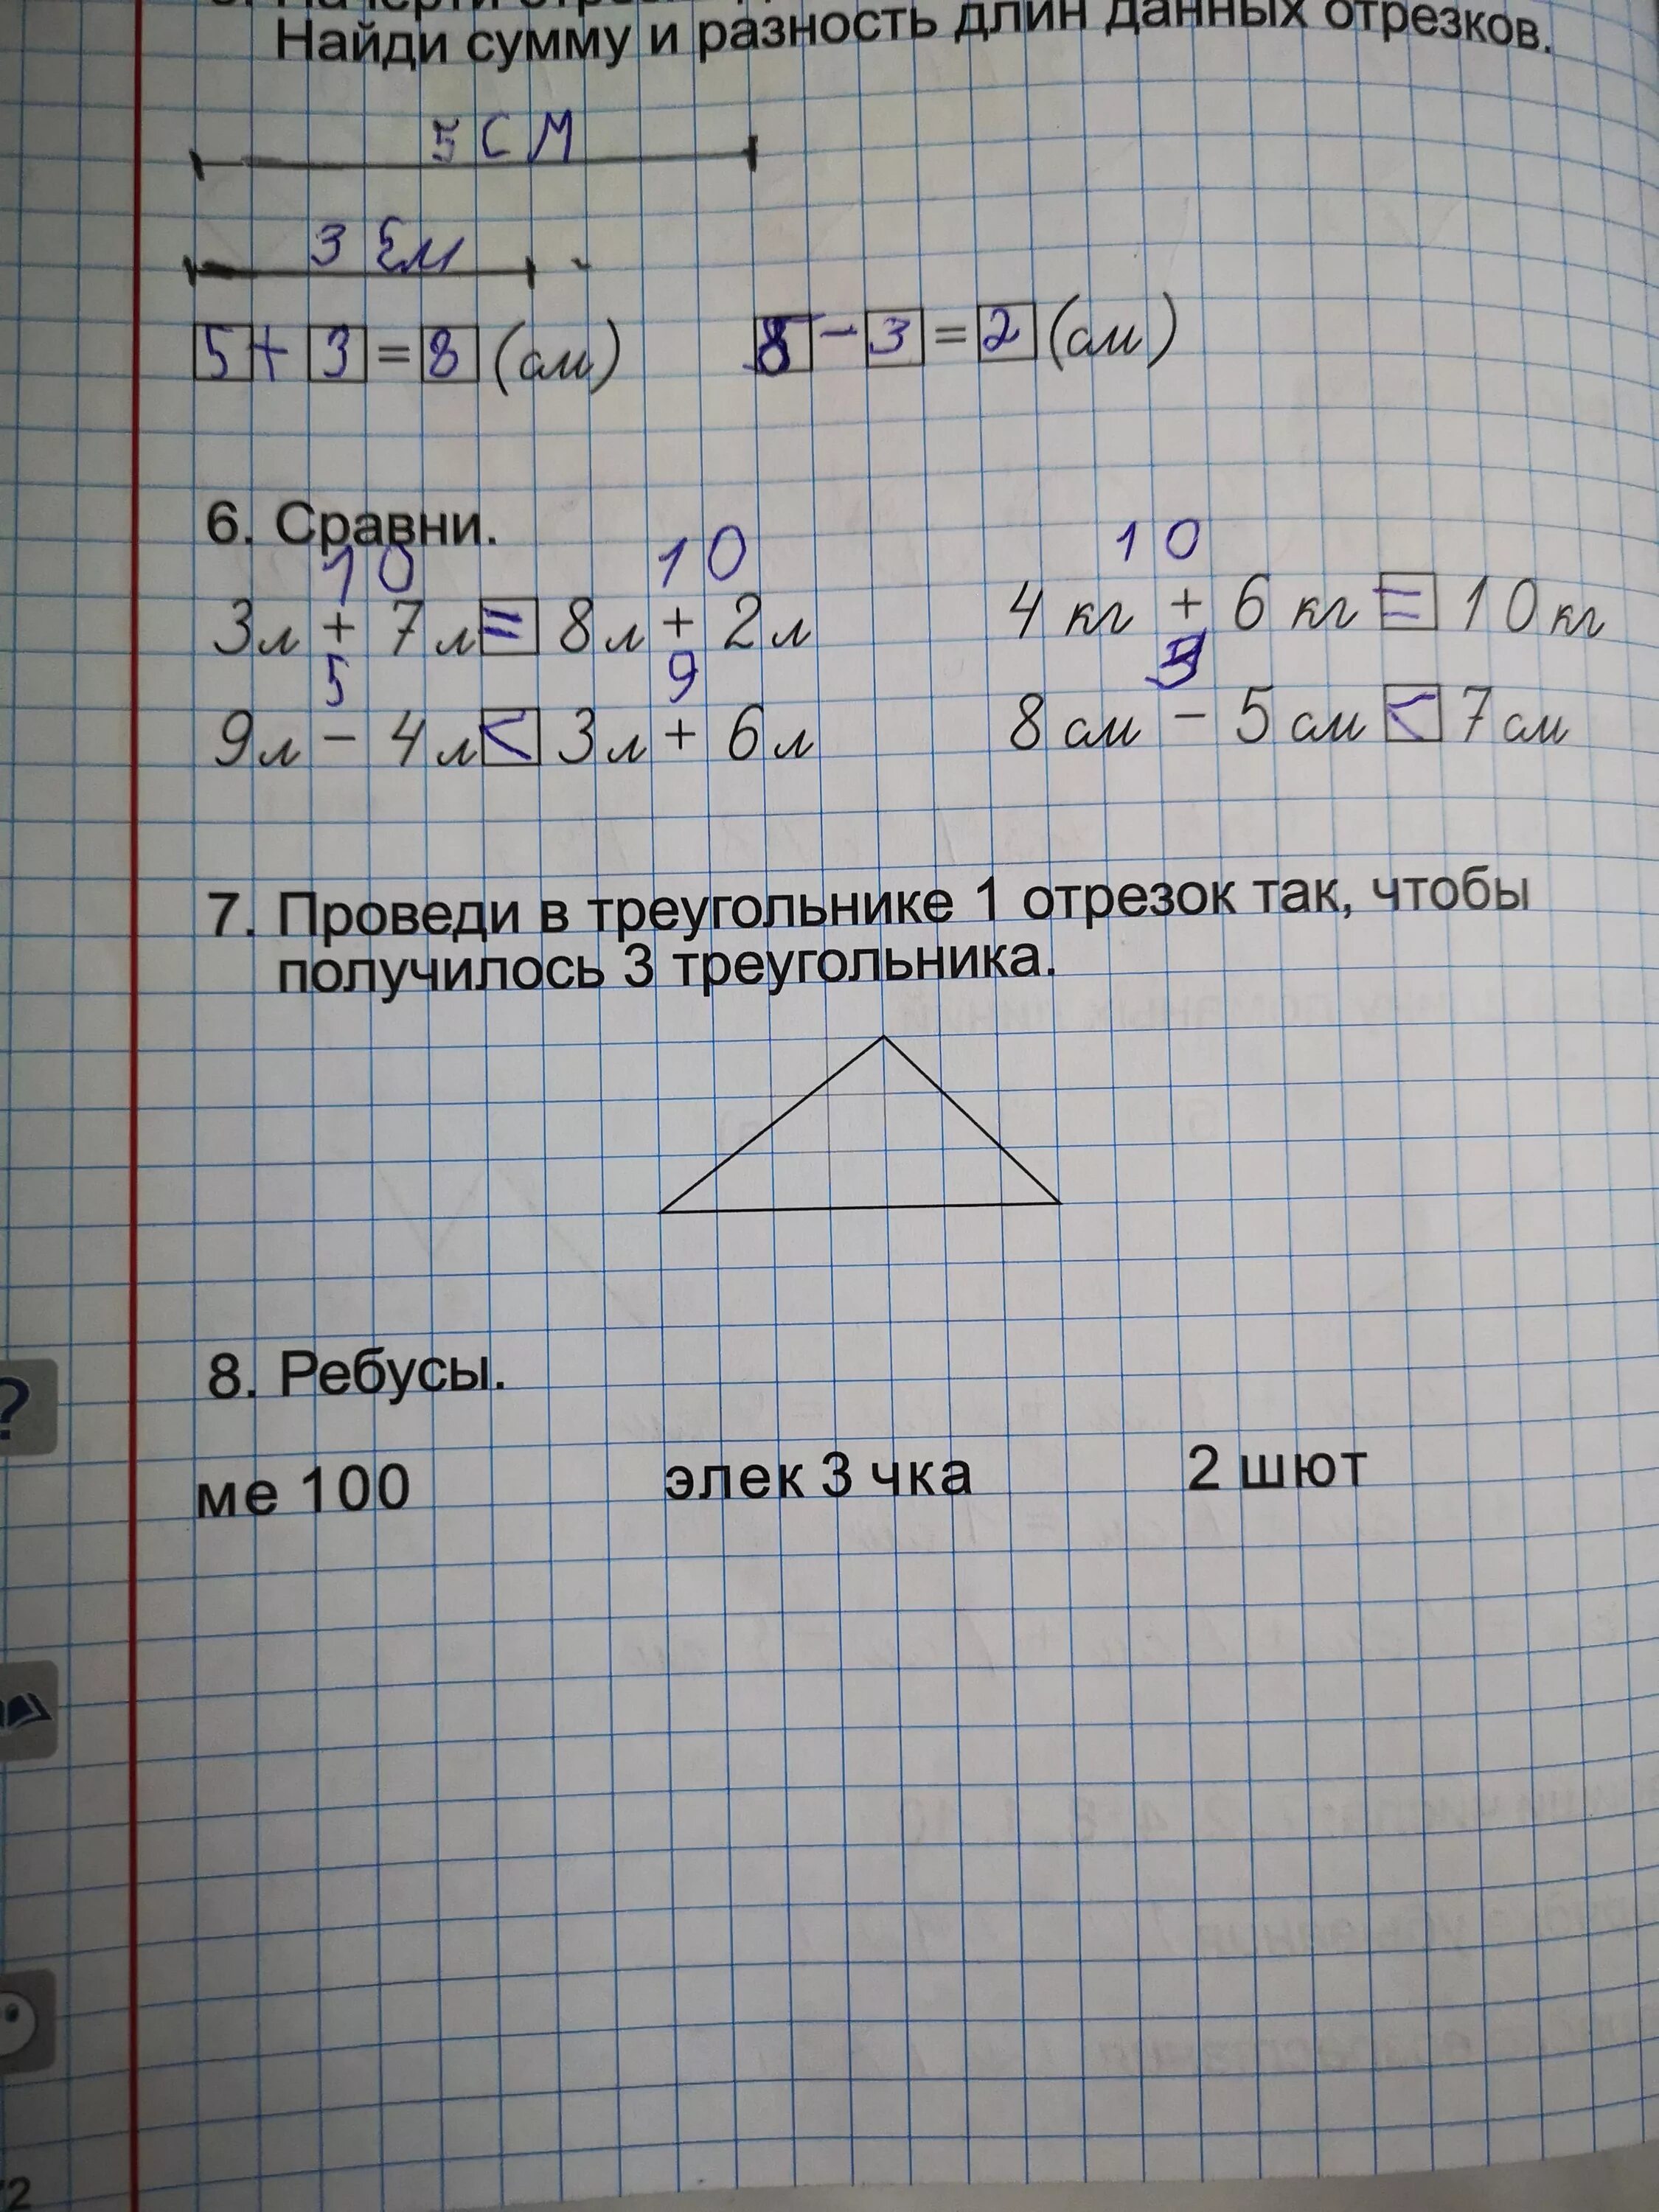 Найди сумму и разность длин данных отрезков.
5 СМ
3 см
5 + 3 = 8 (см)
8 - 3 = 2 (см)
6. Сравни.
10 10 10
3л + 7л = 8л + 2л 4 кг + 6 кг = 10 кг
5 9 3
9л - 4л < 3л + 6л 8 см - 5 см < 7 см
7. Проведи в треугольнике 1 отрезок так, чтобы
получилось 3 треугольника.
8. Ребусы.
?
ме 100 элек 3 чка 2 шют